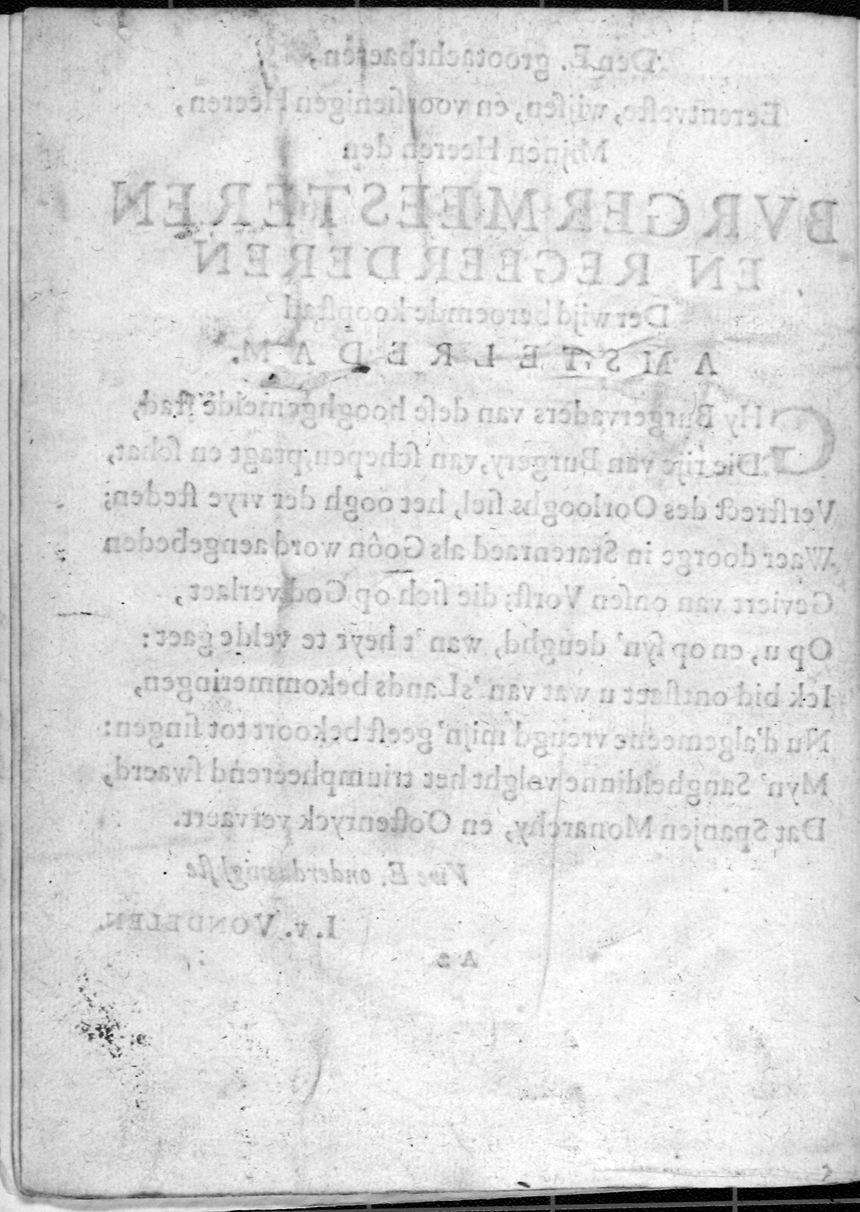 Den E. grootachtbaeren,
Eerentveste, wijsen, en voorsienigen Heeren,
Mijnen Heeren den
BVRGERMEESTEREN
EN REGEERDEREN
Der wijd beroemde koopstad
AMSTELREDAM.
GHy Burgervaders van dese hooghgemelde stad,
Die rijc van Burgery, van schepen, pragt en schat,
Verstreckt des Oorlooghs siel, het oogh der vrye steden;
Waer doorge in Statenraed als Goôn word aengebeden
Geviert van onsen Vorst; die sich op God verlaet,
Op u, en op syn' deughd, wan 't heyr te velde gaet:
Ick bid ontslaet u wat van 's Lands bekommeringen,
Nu d'algemeene vreugd mijn' geest bekoort tot singen:
Myn' Sangheldinne volght het triumpheerend swaerd,
Dat Spanjen Monarchy, en Oostenryck vervaert.
Vwe E. onderdanighste
I. v. VONDELEN.
A 2